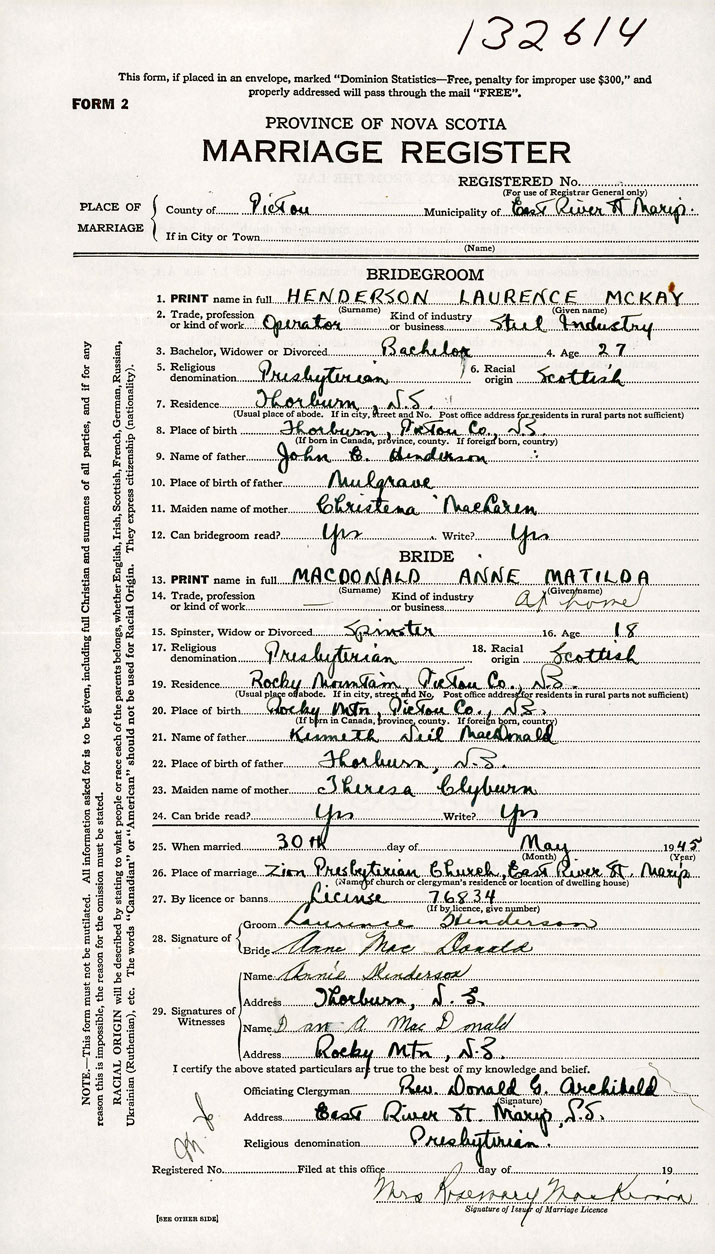 132614
This form, if placed in an envelope, marked "Dominion Statistics—Free, penalty for improper use $300," and
properly addressed will pass through the mail "FREE".
FORM 2
PROVINCE OF NOVA SCOTIA
MARRIAGE REGISTER
REGISTERED No.
(For use of Registrar General only)
PLACE OF MARRIAGE
County of Pictou Municipality of East River St Marys.
If in City or Town
(Name)
BRIDEGROOM
1. PRINT name in full HENDERSON LAURENCE MCKAY
(Surname) (Given name)
2. Trade, profession or kind of work Operator Kind of industry or business Steel Industry
3. Bachelor, Widower or Divorced Bachelor 4. Age 27
5. Religious denomination Presbyterian 6. Racial origin Scottish
7. Residence Thorburn, N.S.
(Usual place of abode. If in city, street and No. Post office address for residents in rural parts not sufficient)
8. Place of birth Thorburn, Pictou Co., N.S.
(If born in Canada, province, county. If foreign born, country)
9. Name of father John C. Henderson
10. Place of birth of father Mulgrave
11. Maiden name of mother Christena MacLaren
12. Can bridegroom read? Yes Write? Yes
BRIDE
13. PRINT name in full MACDONALD ANNE MATILDA
(Surname) (Given name)
14. Trade, profession or kind of work — Kind of industry or business At home
15. Spinster, Widow or Divorced Spinster 16. Age 18
17. Religious denomination Presbyterian 18. Racial origin Scottish
19. Residence Rocky Mountain, Pictou Co., N.S.
(Usual place of abode. If in city, street and No. Post office address for residents in rural parts not sufficient)
20. Place of birth Rocky Mtn, Pictou Co., N.S.
(If born in Canada, province, county. If foreign born, country)
21. Name of father Kenneth Neil MacDonald
22. Place of birth of father Thorburn, N.S.
23. Maiden name of mother Theresa Clyburn
24. Can bride read? Yes Write? Yes
25. When married 30th day of May 1945
(Month) (Year)
26. Place of marriage Zion Presbyterian Church, East River St. Marys
(Name of church or clergyman's residence or location of dwelling house)
27. By licence or banns License 76834
(If by licence, give number)
28. Signature of
Groom Laurence Henderson
Bride Anne Mac Donald
29. Signatures of Witnesses
Name Annie Henderson
Address Thorburn, N.S.
Name A. Mac Donald
Address Rocky Mtn, N.S.
I certify the above stated particulars are true to the best of my knowledge and belief.
Officiating Clergyman Rev. Donald G. Archibald
(Signature)
Address East River St. Marys, N.S.
Religious denomination Presbyterian.
Registered No. Filed at this office day of 19
Mrs Rosemary MacKinnon
Signature of Issuer of Marriage Licence
[SEE OTHER SIDE]
NOTE.—This form must not be mutilated. All information asked for is to be given, including full Christian and surnames of all parties, and if for any
reason this is impossible, the reason for the omission must be stated.
RACIAL ORIGIN will be described by stating to what people or race each of the parents belongs, whether English, Irish, Scottish, French, German, Russian,
Ukrainian (Ruthenian), etc. The words "Canadian" or "American" should not be used for Racial Origin. They express citizenship (nationality).